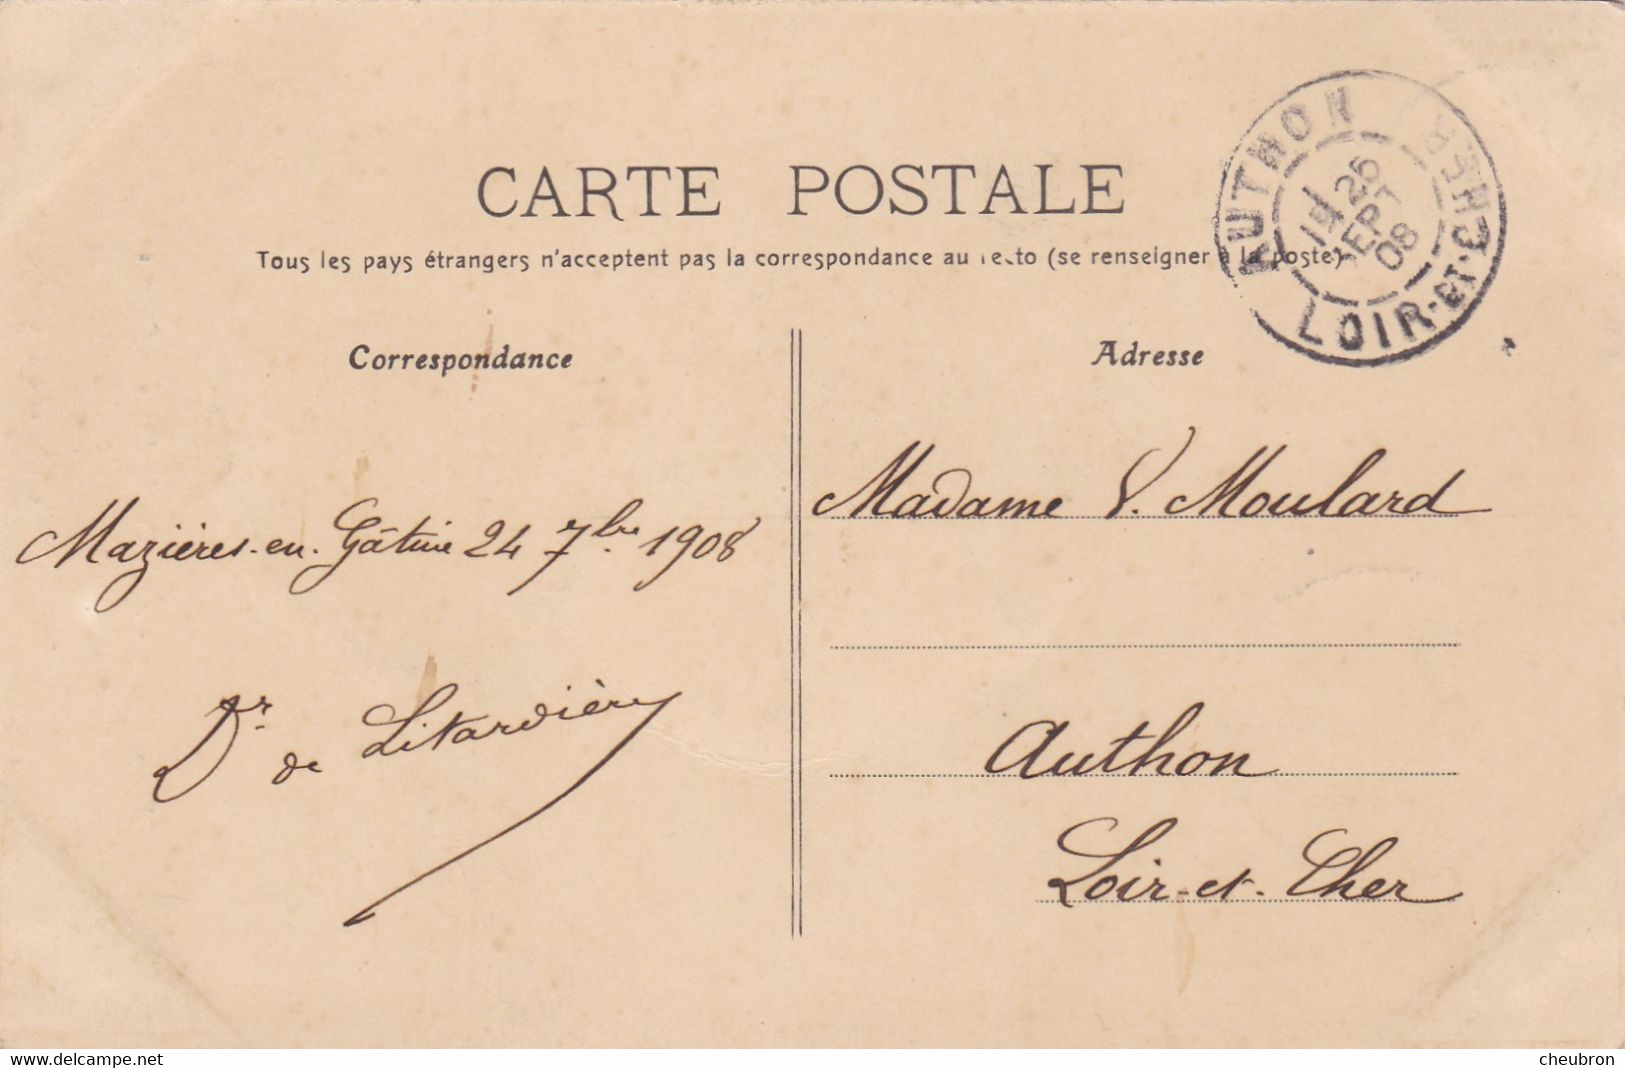 CARTE POSTALE
Tous les pays étrangers n'acceptent pas la correspondance au recto (se renseigner à la poste)
Correspondance
Adresse
AUTHON
26
SEPT
08
LOIR-ET-CHER
Mazières-en-Gâtine 24 7bre 1908
Dr de Litardière
Madame V. Moulard
Authon
Loir-et-Cher
www.delcampe.net
cheubron